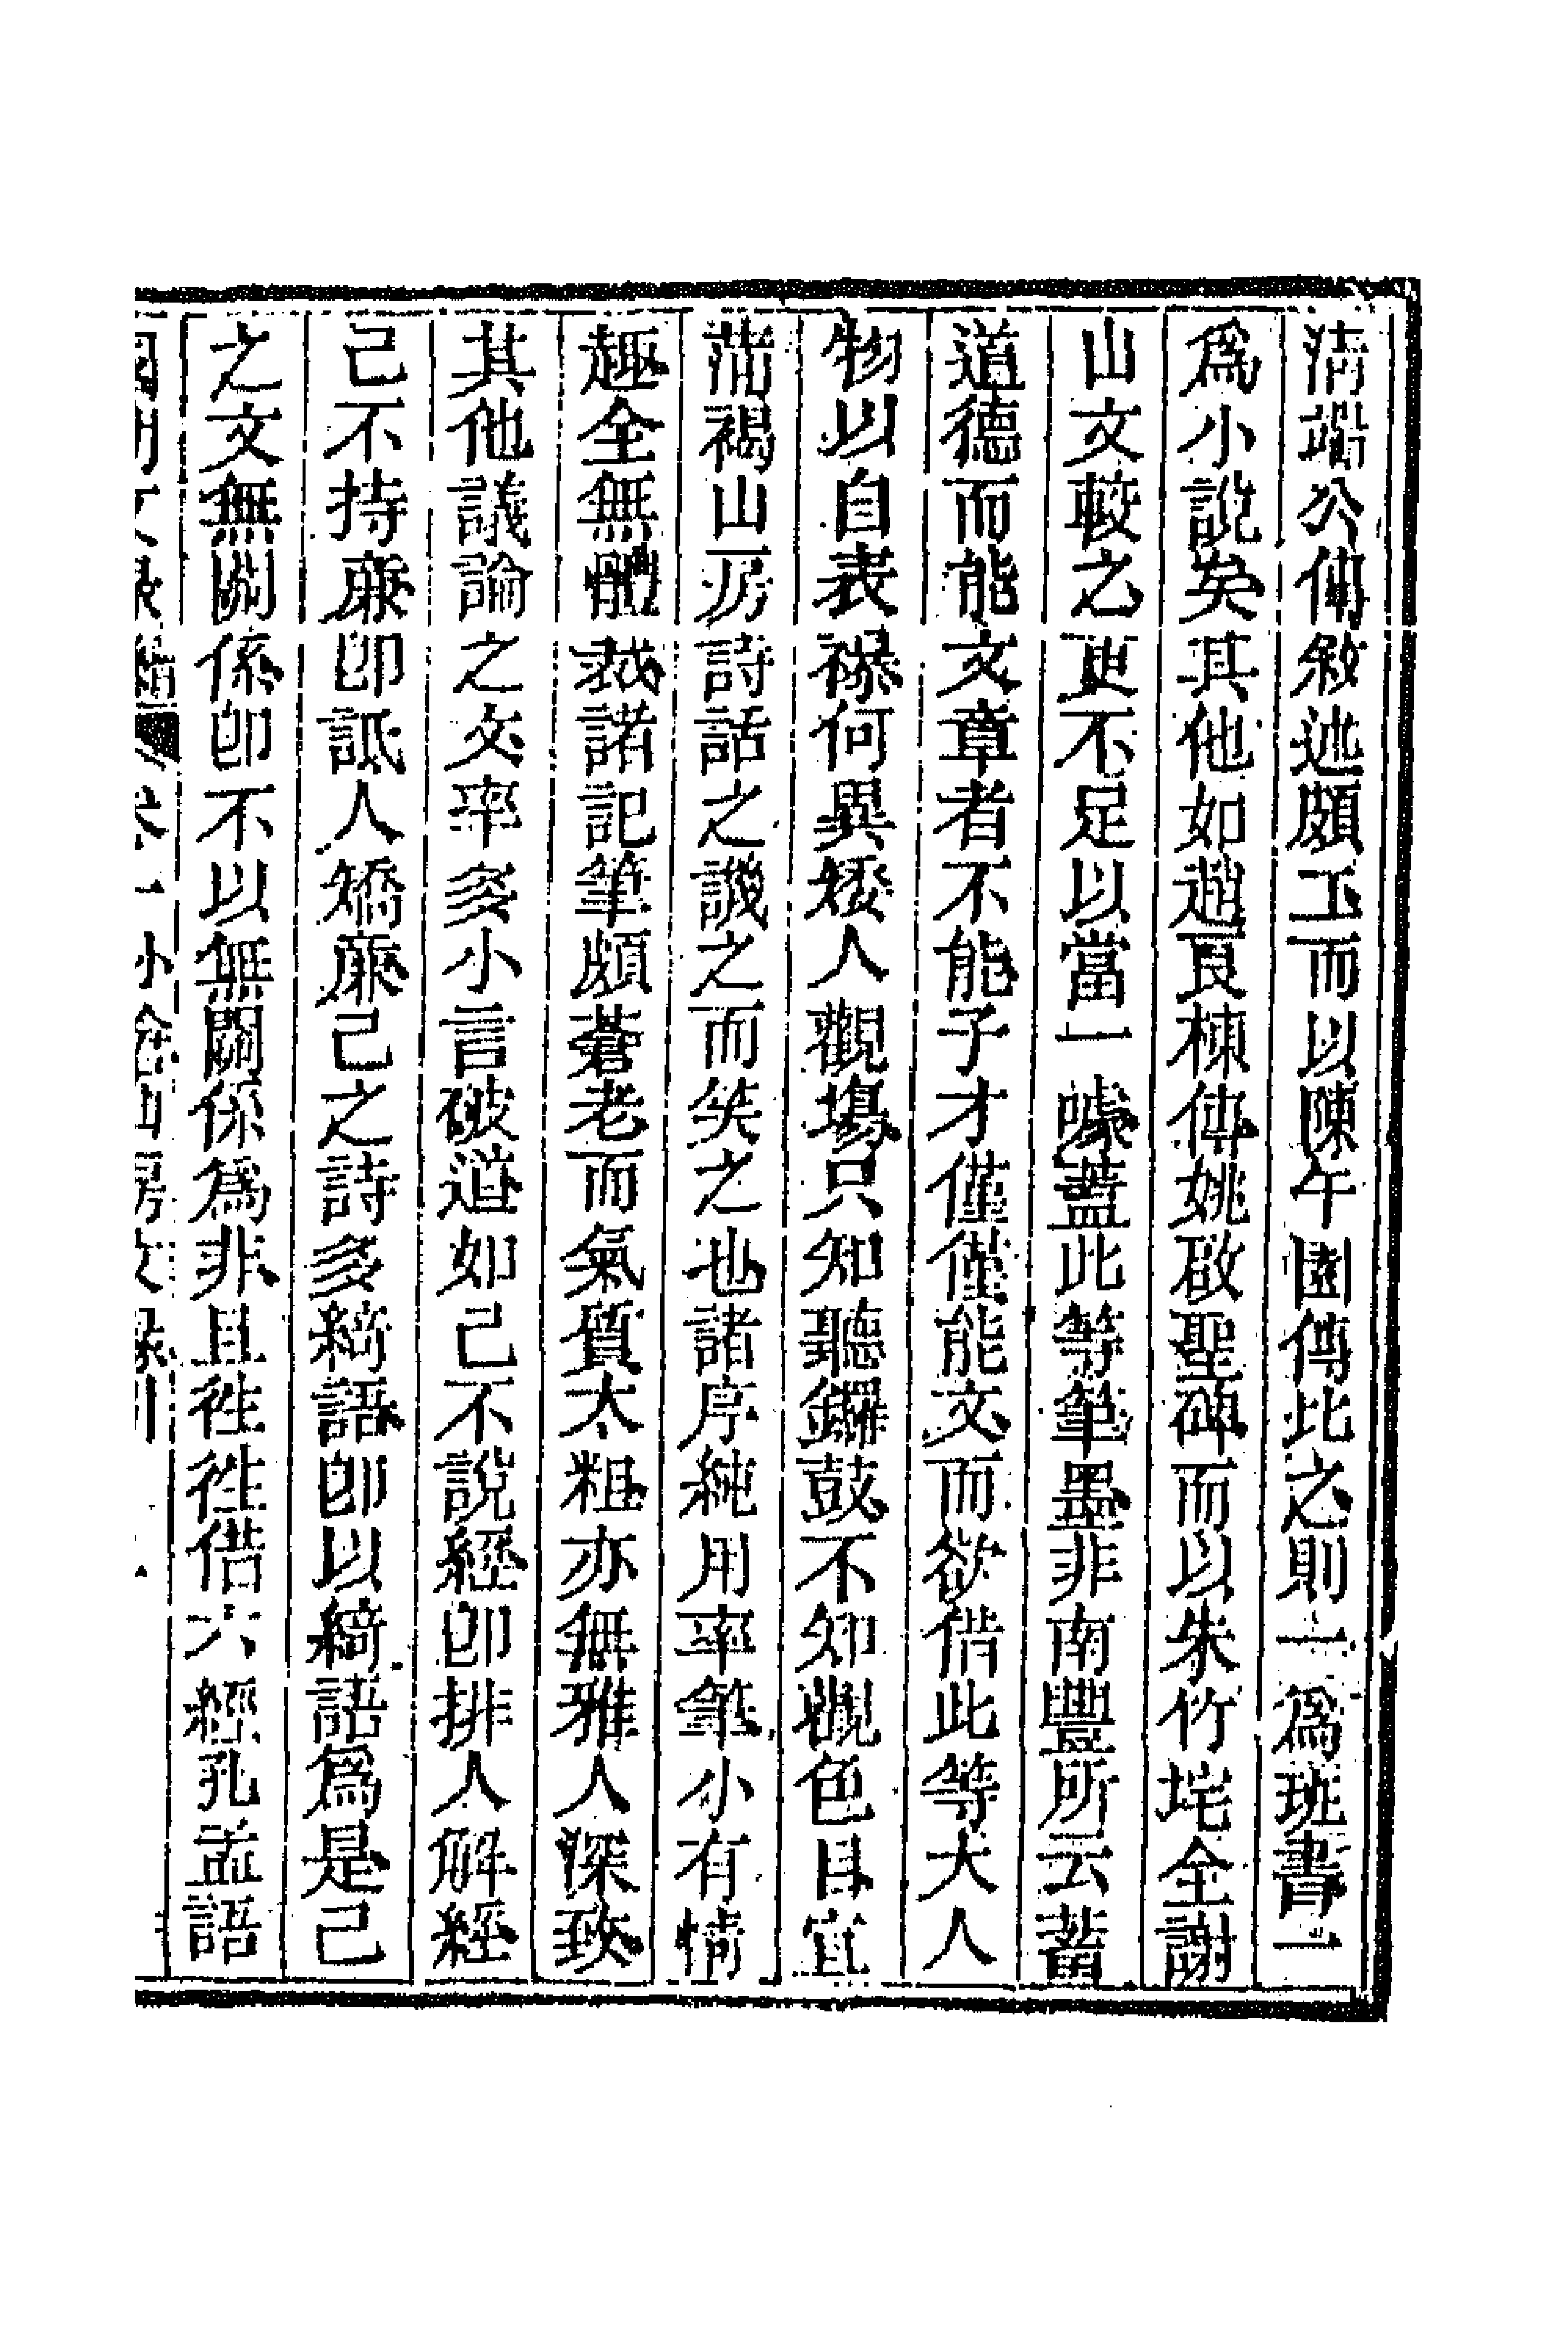 清端公傳敘述頗工而以陳午園傳比之則一爲班書一
爲小說矣其他如趙艮棟傳姚啟聖碑而以朱竹垞全謝
山文較之更不足以當一噱蓋此等筆墨非南豐所云蓄
道德而能文章者不能子才僅僅能文而欲借此等大人
物以自表襮何異矮人觀場只知聽鑼鼓不知觀色目宜
蒲褐山房詩話之譏之而笑之也諸序純用率筆小有情
趣全無體裁諸記筆頗蒼老而氣質太粗亦無雅人深致
其他議論之文率多小言破道如己不說經卽排人解經
己不持廉卽詆人矯廉己之詩多綺語卽以綺語爲是己
之文無關係卽不以無關係爲非且徃徃借六經孔孟語